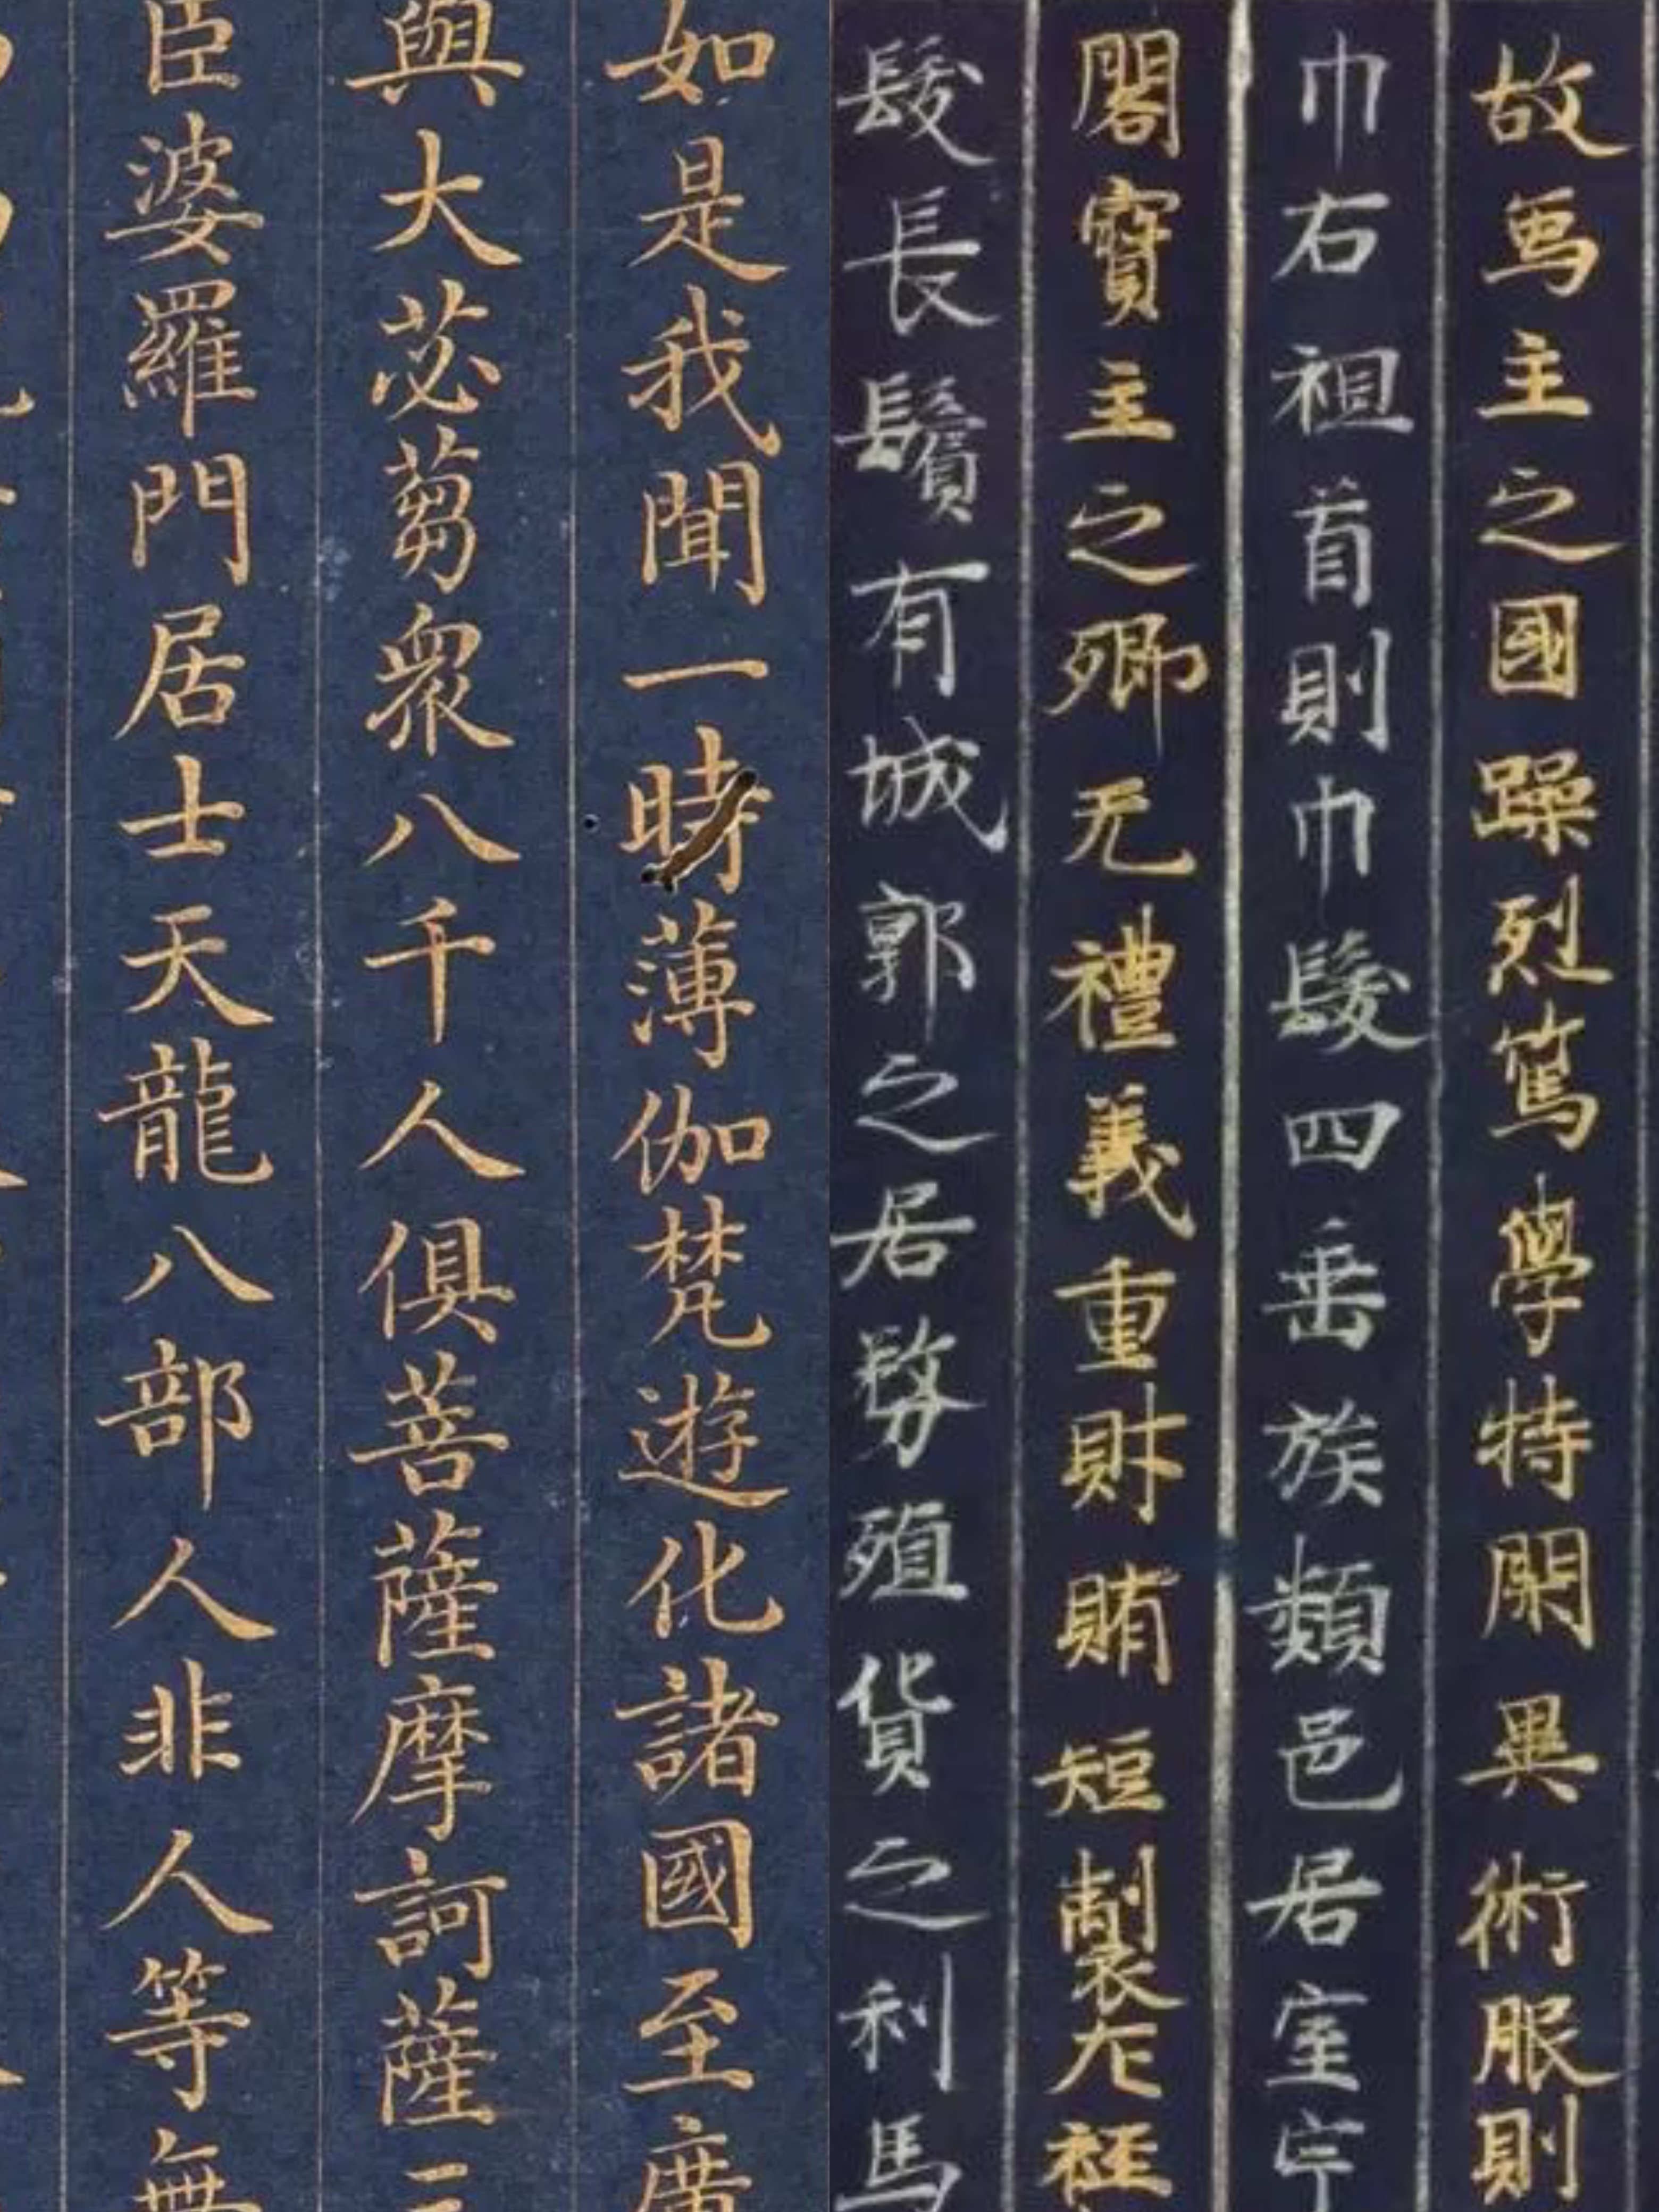 故象主之國躁烈篤學特閑異術服則
巾右袒首則巾髮四垂族類邑居室宇
閣寶主之鄉无禮義重財賄短製左衽
髮長鬚有城郭之居務殖貨之利馬
如是我聞一時薄伽梵遊化諸國至廣
與大苾蒭眾八千人俱菩薩摩訶薩三
臣婆羅門居士天龍八部人非人等無